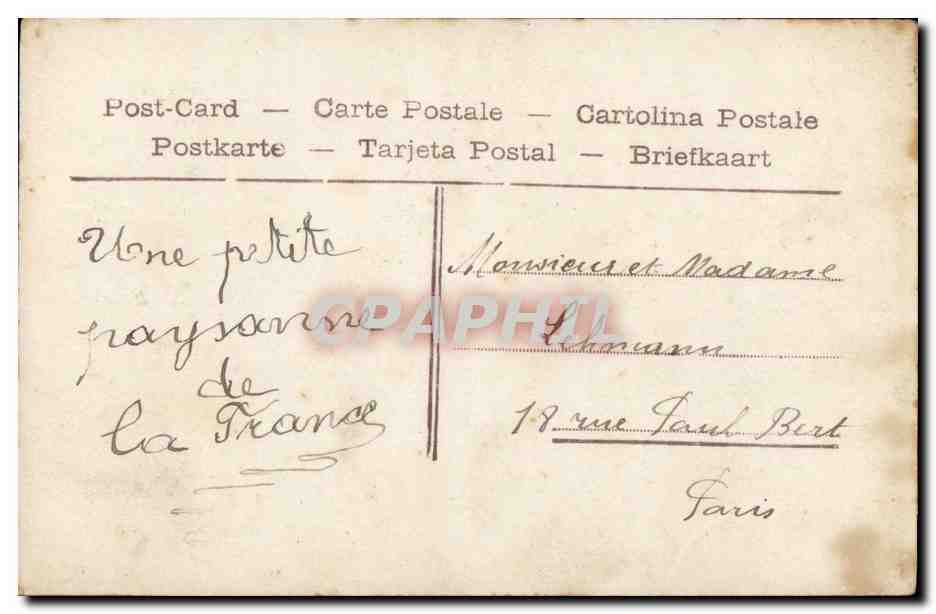 Post-Card — Carte Postale — Cartolina Postale
Postkarte — Tarjeta Postal — Briefkaart
Une petite
paysanne
de
la France
Monsieur et Madame
Lehmann
18 rue Paul Bert
Paris
CPAPHIL